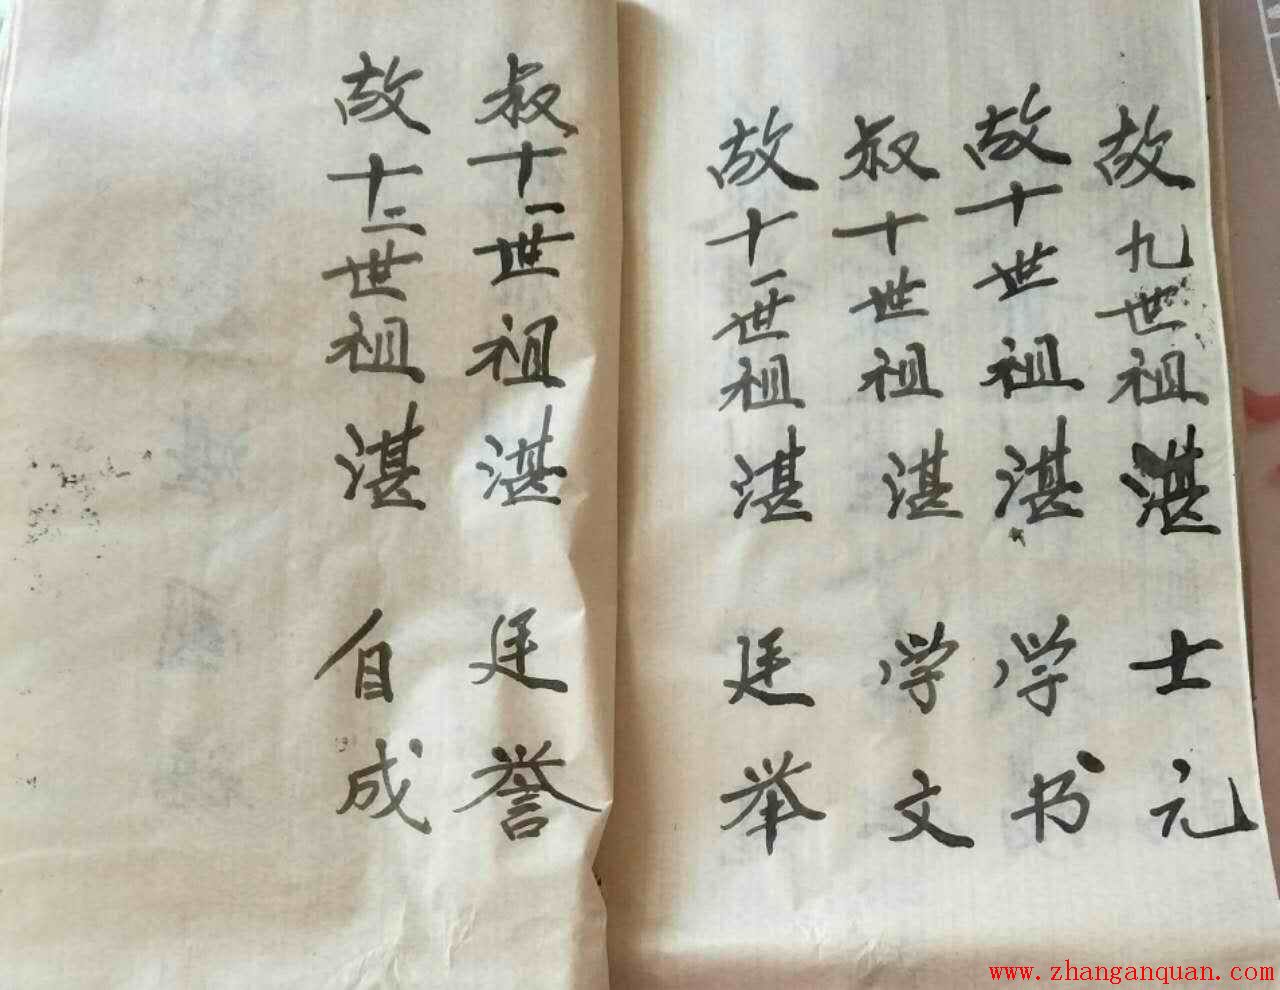 故九世祖湛士元
故十世祖湛学书
叔十世祖湛学文
故十一世祖湛廷举
叔十一世祖湛廷誉
故十二世祖湛自成
www.zhanganquan.com